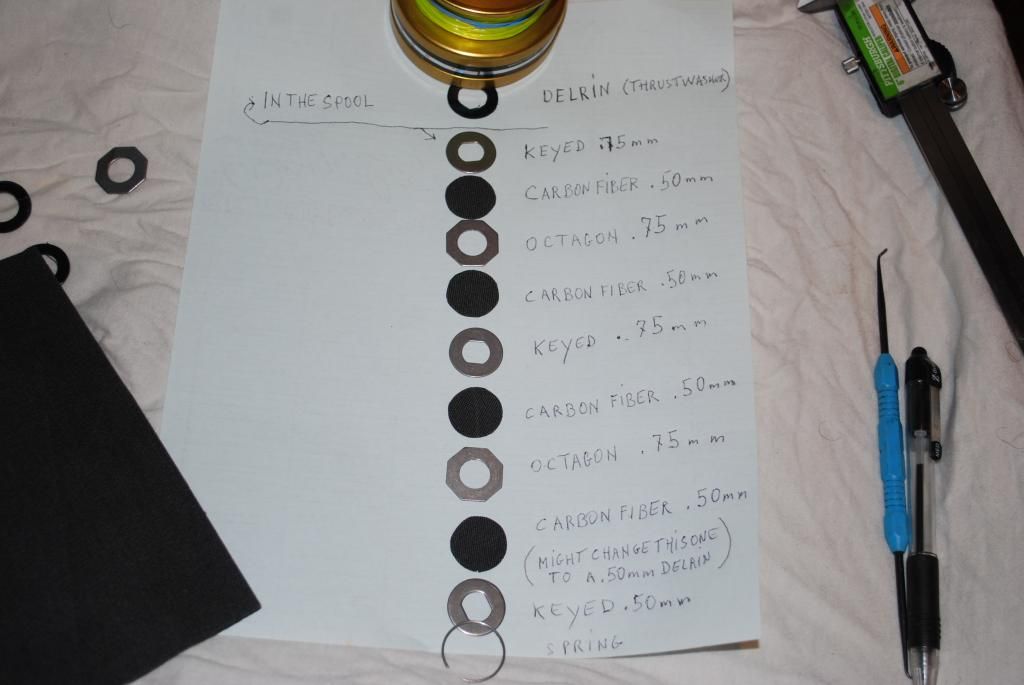 IN THE SPOOL
DELRIN (THRUSTWASHER)
KEYED .75mm
CARBON FIBER .50mm
OCTAGON .75mm
CARBON FIBER .50mm
KEYED .75mm
CARBON FIBER .50mm
OCTAGON .75mm
CARBON FIBER .50mm
(MIGHT CHANGE THIS ONE
TO A .50mm DELRAIN)
KEYED .50mm
SPRING
PITTSBURGH